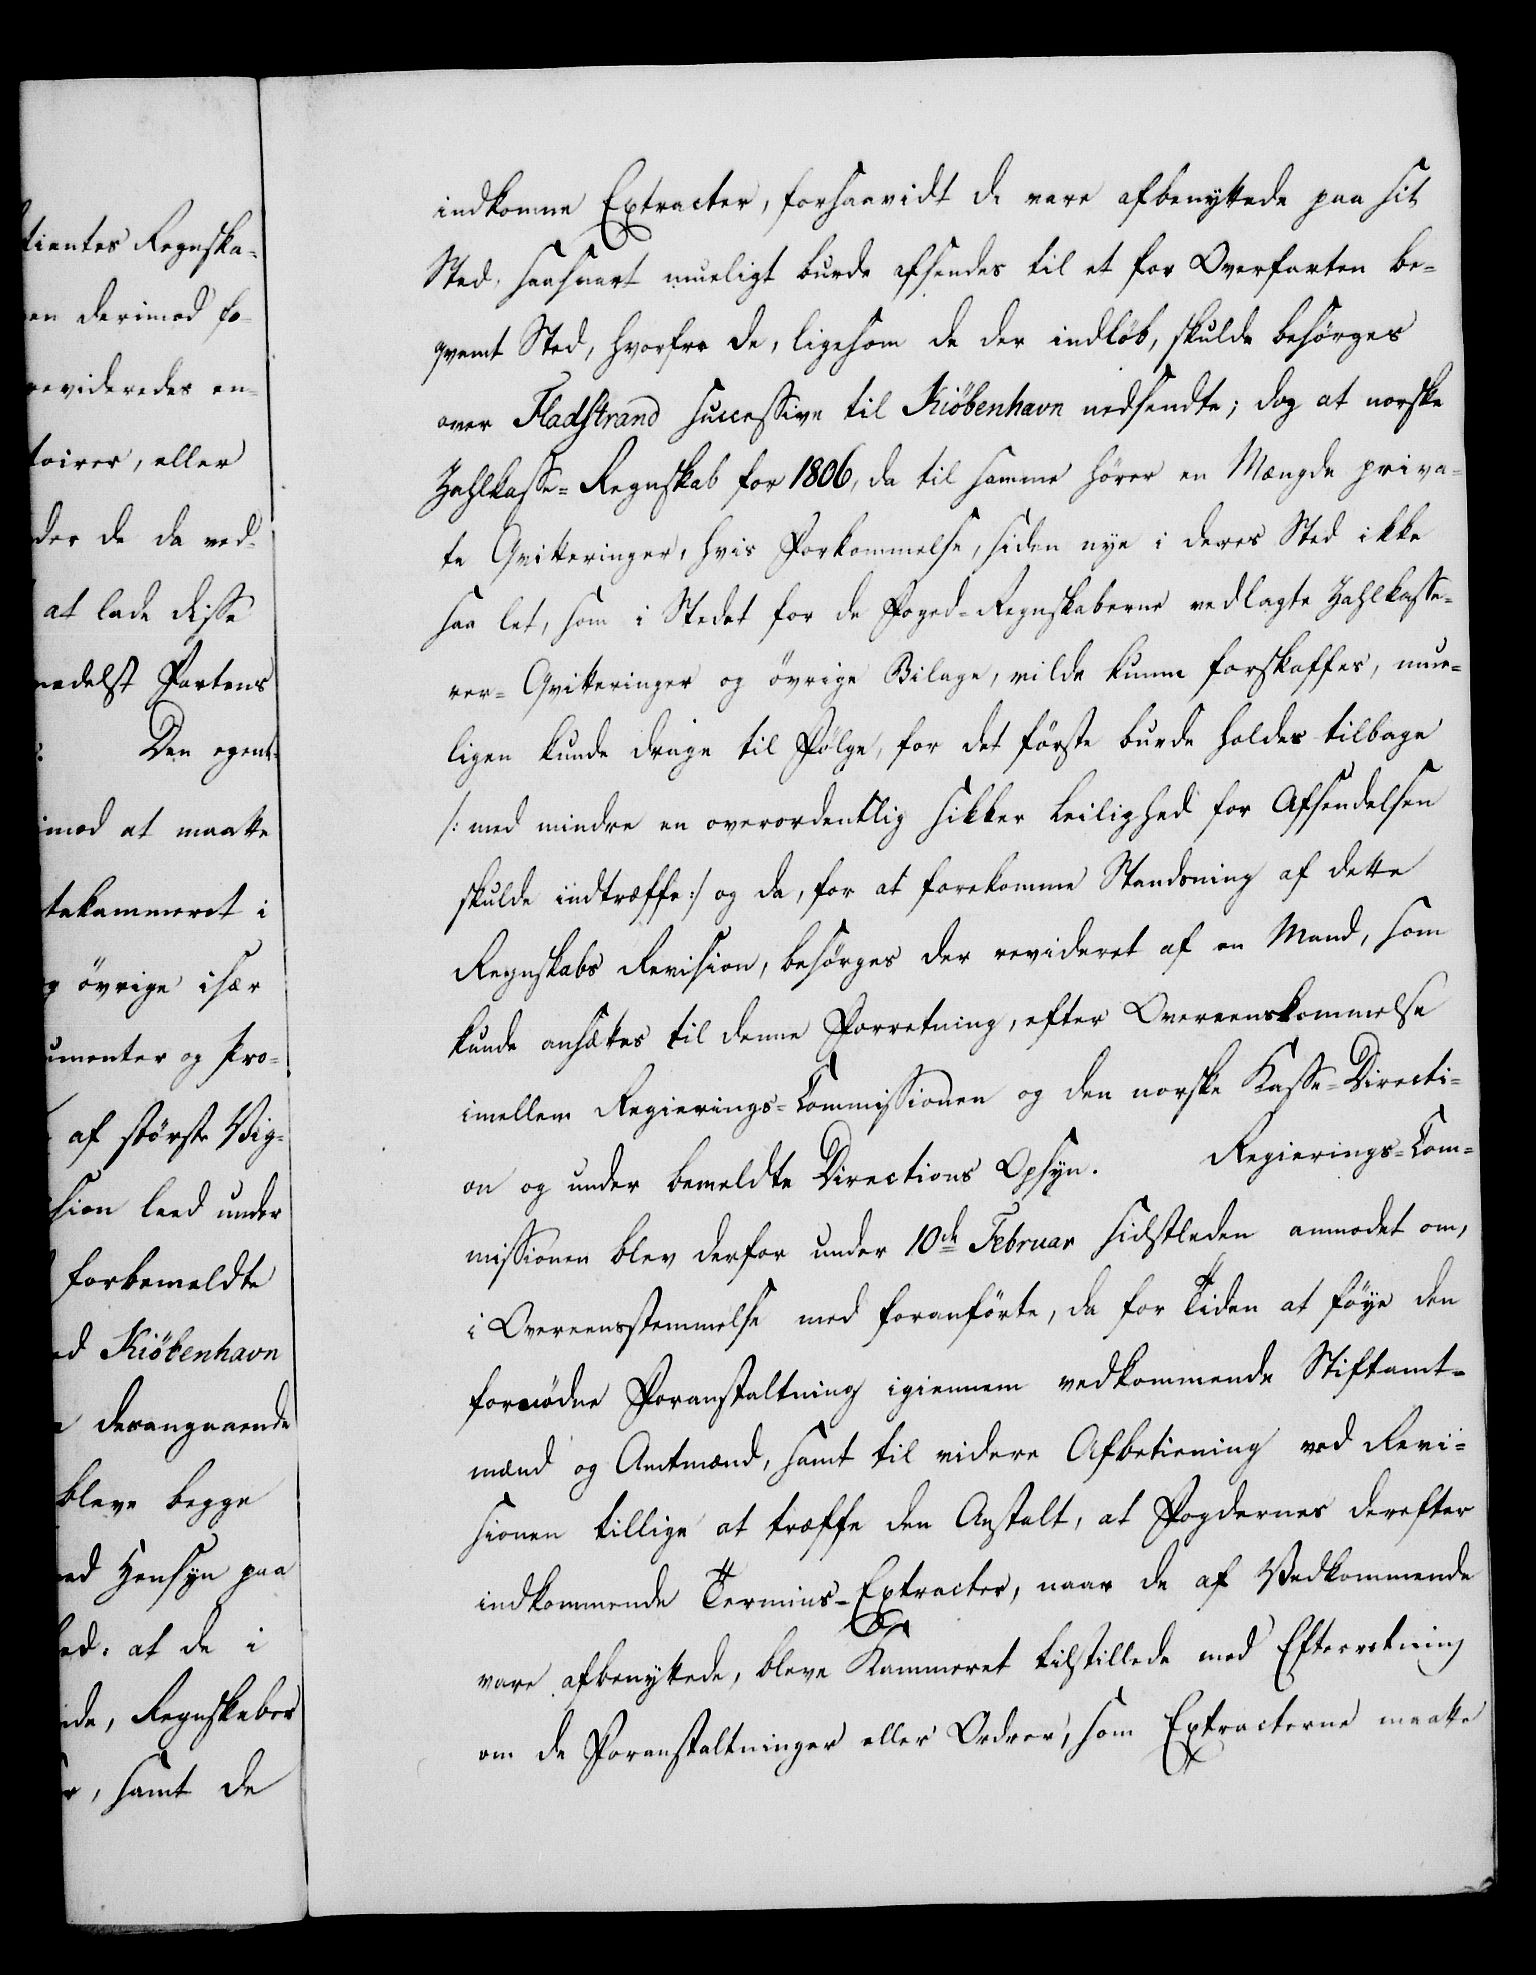 tientes Regnska-
en derimod fo-
revideredes en-
toirer, eller
der de da ved-
at lade disse
medelst Partens
Den egent-
imod at maatte
tekammeret i
g övrige især
umenter og Pro-
af störste Vig-
sion leed under
forbemeldte
ed Kiöbenhavn
derangaaende
bleve begge
ed Hensyn paa
hed, at de i
nde, Regnskaber
r, samt de
indkomne Extracter, forsaavidt de vare afbenyttede paa sit
Sted, saasnart mueligt burde afsendes til et for Overfarten be-
qvemt Sted, hvorfra de, ligesom de der indløb, skulde besörges
over Fladstrand successive til Kiöbenhavn nedsendte; dog at norske
Zahlkasse-Regnskab for 1806, da til samme hörer en Mængde priva-
te Qvitteringer, hvis Forkommelse, siden nye i deres Sted ikke
saa let, som i Stedet for de Foged-Regnskaberne vedlagte Zahlkasse-
rer-Qvitteringer og övrige Bilage, vilde kunne forskaffes, mue-
ligen kunde drage til Fölge, for det förste burde holdes tilbage
/: med mindre en overordentlig sikker Leilighed for Afsendelsen
skulde indtræffe :/ og da, for at forekomme Standsning af dette
Regnskabs Revision, besörges der revideret af en Mand, som
kunde ansættes til denne Forretning, efter Overeenskommelse
imellem Regierings-Commissionen og den norske Kasse-Directi-
on og under bemeldte Directions Opsyn. Regierings-Com-
missionen blev derfor under 10de Februar sidstleden anmodet om,
i Overeensstemmelse med foranförte, da for Tiden at föye den
fornödne Foranstaltning igiennem vedkommende Stiftamt-
mænd og Amtmænd, samt til videre Afbetiening ved Revi-
sionen tillige at træffe den Anstalt, at Fogdernes derefter
indkommende Termins-Extracter, naar de af Vedkommende
vare afbenyttede, bleve Kammeret tilstillede med Efterretning
om de Foranstaltninger eller Ordrer, som Extracterne maatte